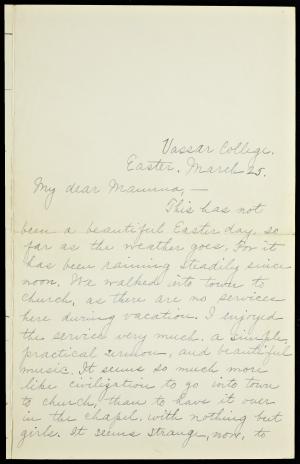 Vassar College.
Easter. March 25.
My dear Mamma,—
This has not
been a beautiful Easter day, so
far as the weather goes, For it
has been raining steadily since
noon. We walked into town to
church, as there are no services
here during vacation. I enjoyed
the service very much. a simple,
practical sermon, and beautiful
music. It seems so much more
like civilization to go into town
to church, than to have it over
in the chapel, with nothing but
girls. It seems strange, now, to